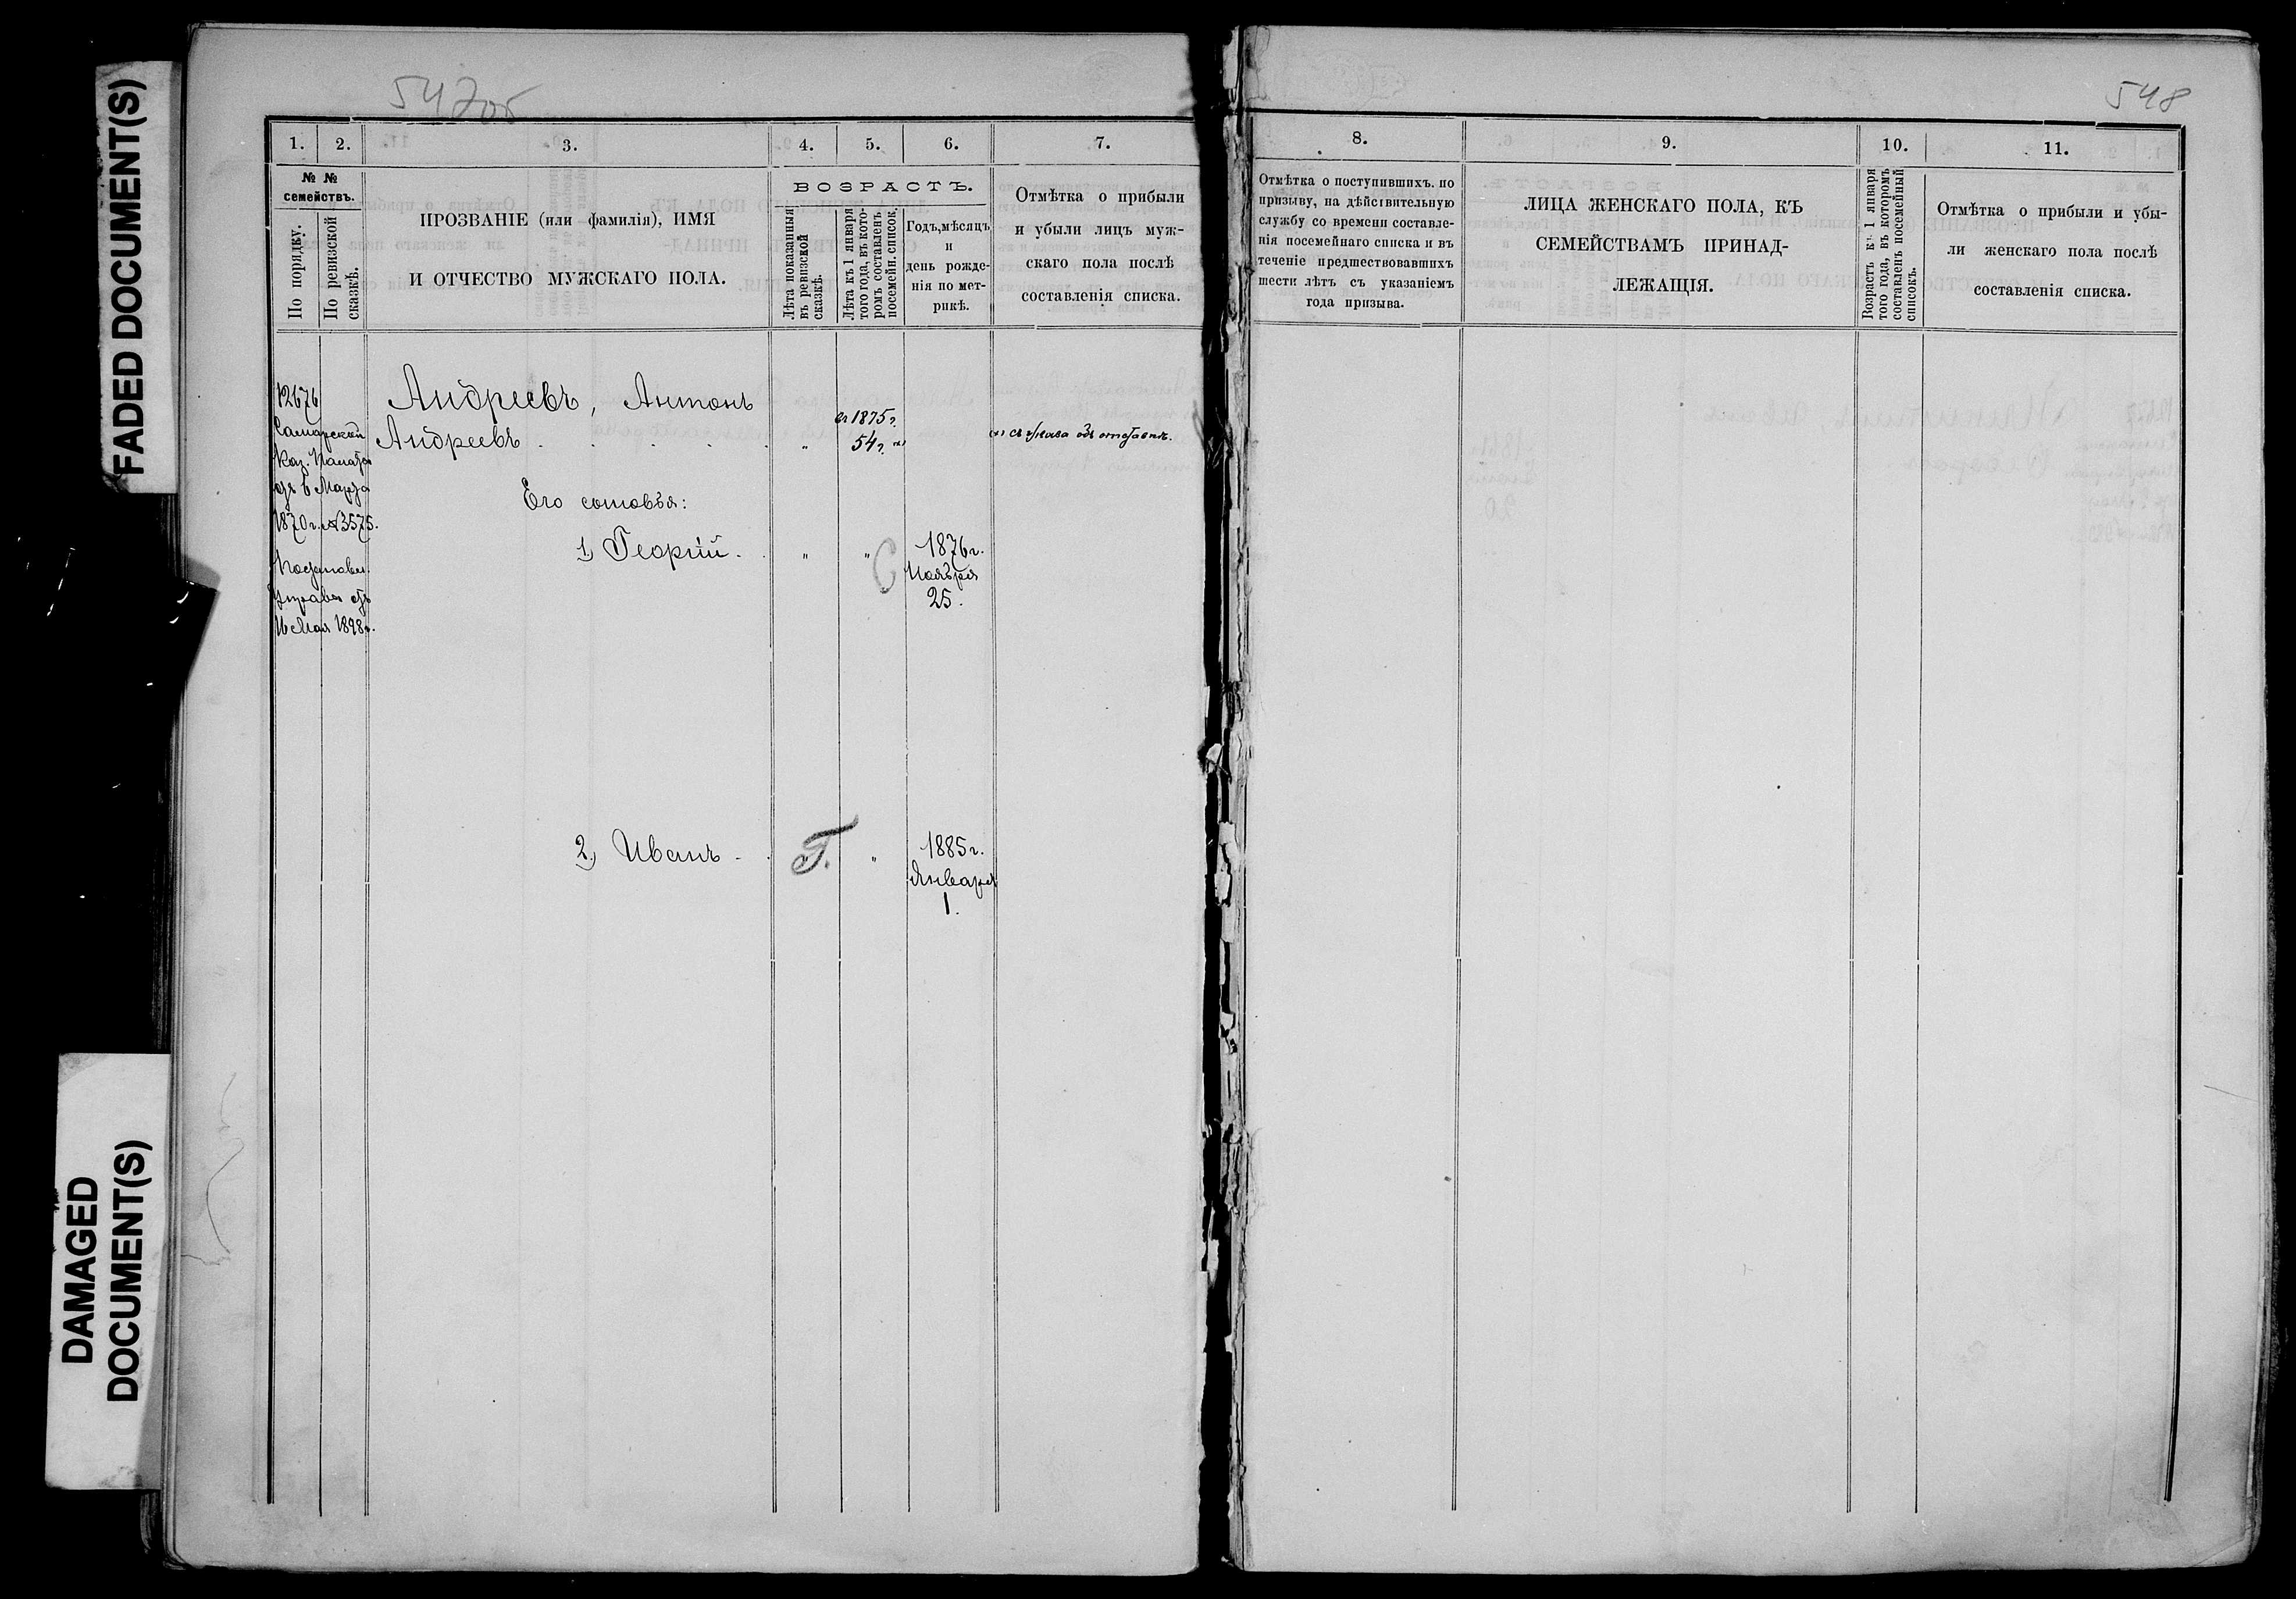 FADED DOCUMENT(S)
DAMAGED
DOCUMENT(S)
547об
1. 2. 3. 4. 5. 6. 7.
№ №
семействъ.
По порядку.
По ревизской
сказкѣ.
ПРОЗВАНІЕ (или фамилія), ИМЯ
И ОТЧЕСТВО МУЖСКАГО ПОЛА.
ВОЗРАСТЪ.
Лѣта показанныя
въ ревизской
сказкѣ.
Лѣта къ 1 января
того года, въ кото-
ромъ составленъ
посемейн. список.
Годъ, мѣсяцъ
и
день рожде-
нія по мет-
рикѣ.
Отмѣтка о прибыли
и убыли лицъ муж-
скаго пола послѣ
составленія списка.
12676
Самарской
Каз. Палаты
отъ 6 Марта
1870 г. № 3575.
Постановл.
Управы отъ
16 Мая 1898 г.
Андреевъ, Антонъ
Андреевъ . . . . . „ 54 г.
въ 1875 г.
Его сыновья:
1) Георгій . . „ „ 1876 г.
Ноября
25.
2) Иванъ - . Г. „ 1885 г.
Января
1.
548
8. 9. 10. 11.
Отмѣтка о поступившихъ по
призыву, на дѣйствительную
службу со времени составле-
нія посемейнаго списка и въ
теченіе предшествовавшихъ
шести лѣтъ съ указаніемъ
года призыва.
ЛИЦА ЖЕНСКАГО ПОЛА, КЪ
СЕМЕЙСТВАМЪ ПРИНАД-
ЛЕЖАЩІЯ.
Возрастъ къ 1 января
того года, въ которомъ
составленъ посемейный
списокъ.
Отмѣтка о прибыли и убы-
ли женскаго пола послѣ
составленія списка.